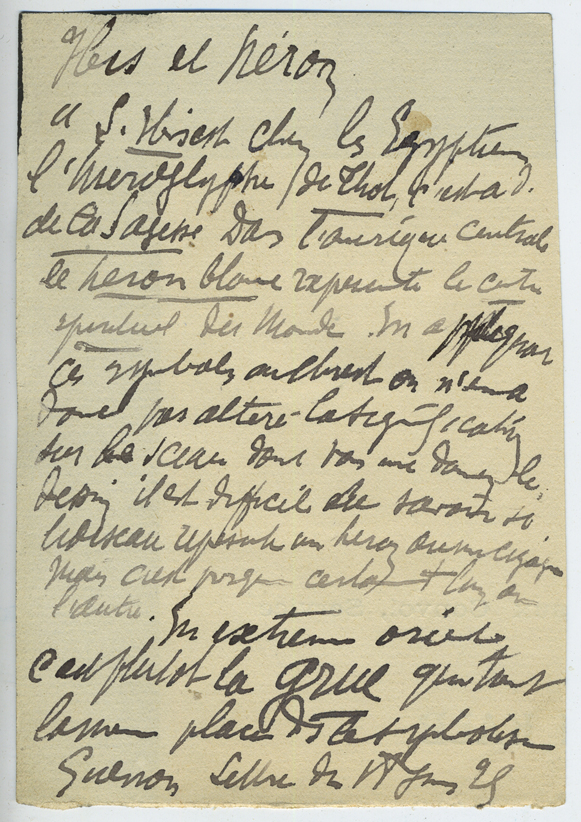 Ibis et héron
a S. Ibis est chez les Egyptiens
l'hieroglyphe de Thot, c'est a d.
de la Sagesse Dans l'amérique centrale
le heron blanc represente le centre
spirituel du Monde. En appliquant
ces symboles au Christ on n'en a
donc pas altéré la signification
sur le sceau dont vous me donnez le
dessin il est difficile de savoir si
l'oiseau represente un heron ou une cigogne
mais c'est presque certainement l'un ou
l'autre.
En extreme orient
c'est plutot la grue qui tient
la meme place dans le symbolisme
Guenon Lettre du Juin 25